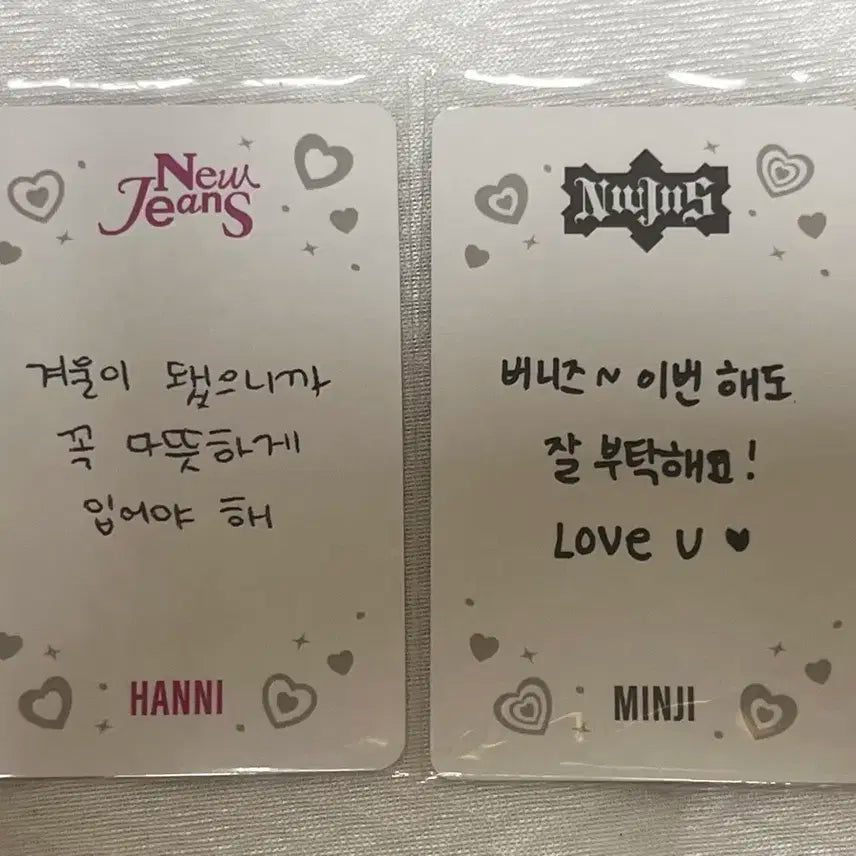 New
Jeans
겨울이 됐으니까
꼭 따뜻하게
입어야 해
HANNI
NwJns
버니즈~ 이번 해도
잘 부탁해요!
Love u ♥
MINJI